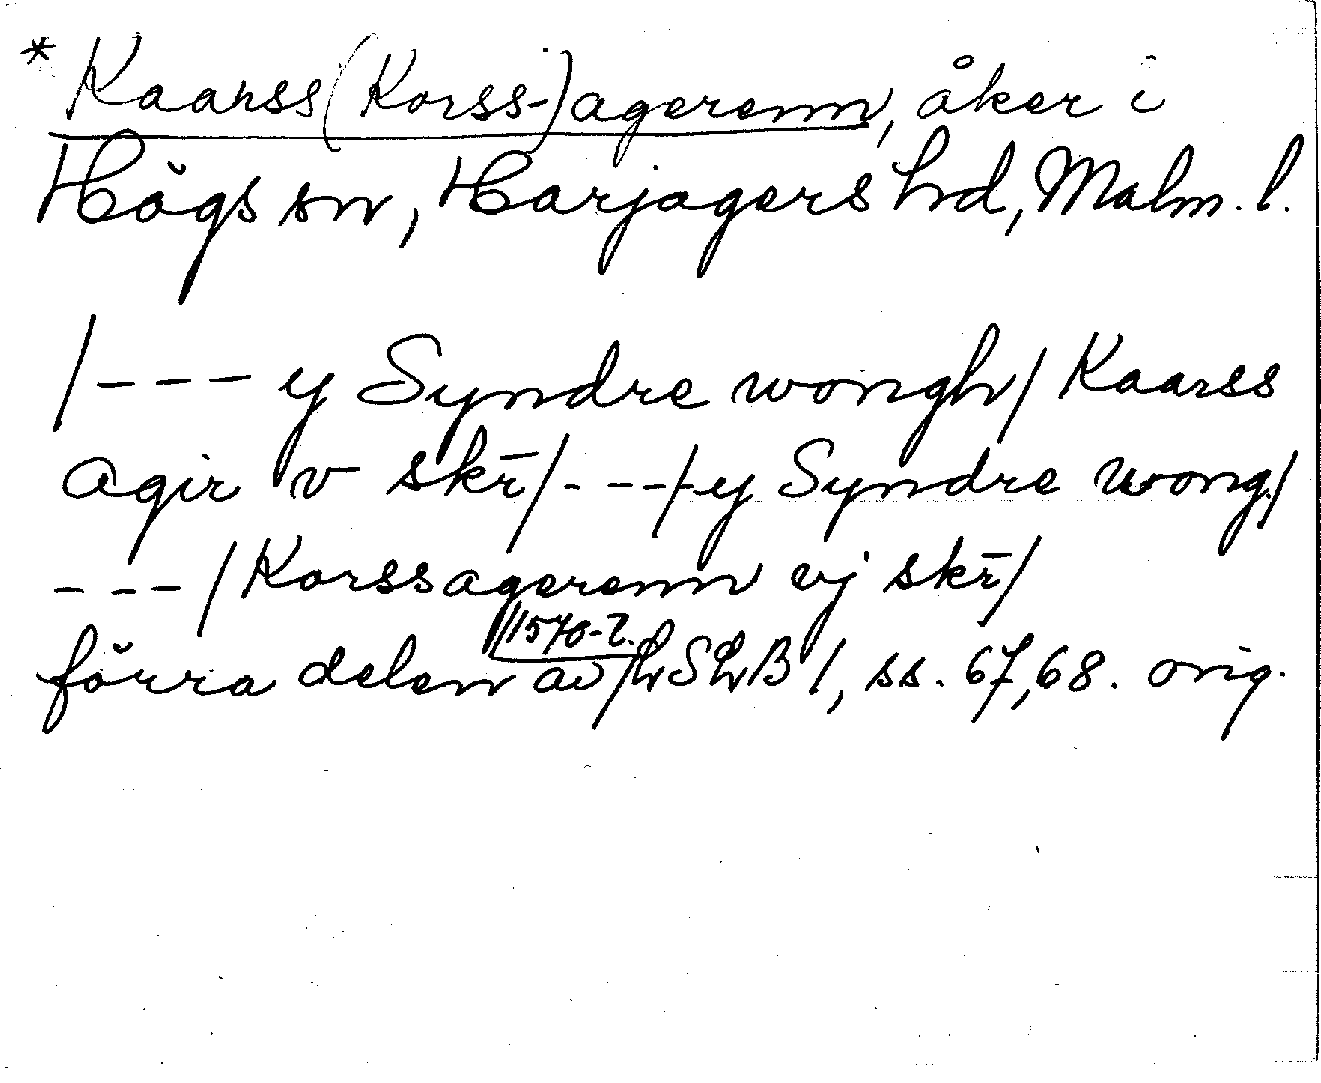 * Kaarss(Korss-)agerenn, åker i
Högs sn, Harjagers hd, Malm. l.
/--- y Syndre wongh/ Kaarss
agir v skr̄/---/y Syndre wong/
---/Korssagerenn vj skr̄/
1570-t.
förra delen av LSLB 1, ss. 67,68. orig.